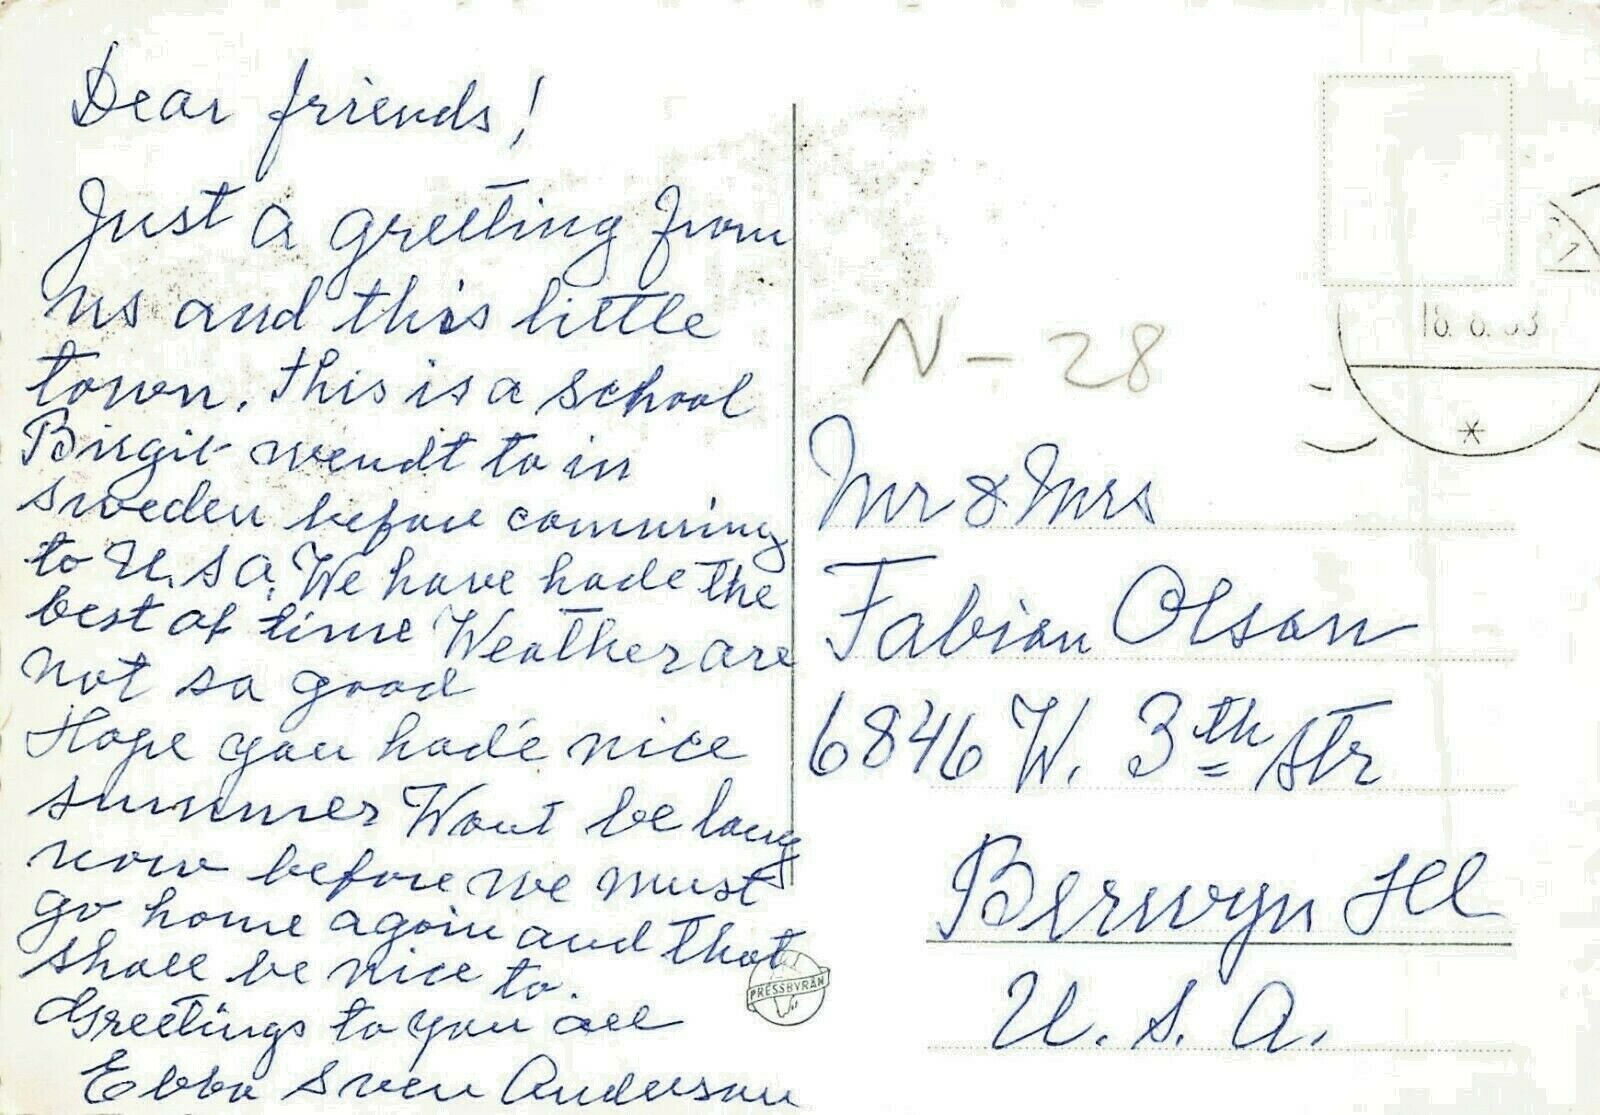 Dear friends!
Just a greeting from
us and this little
town. this is a school
Birgit wendt to in
sweden before comming
to U.S.A. We have hade the
best of time Weather are
not so good
Hope you hade nice
summer Wont be long
now before we must
go home again and that
shall be nice to.
Greetings to you all
Ebba Sven Anderson
PRESSBYRÅN
N-28
Mr & Mrs
Fabian Olson
6846 W. 3th Str
Berwyn Ill
U.S.A.